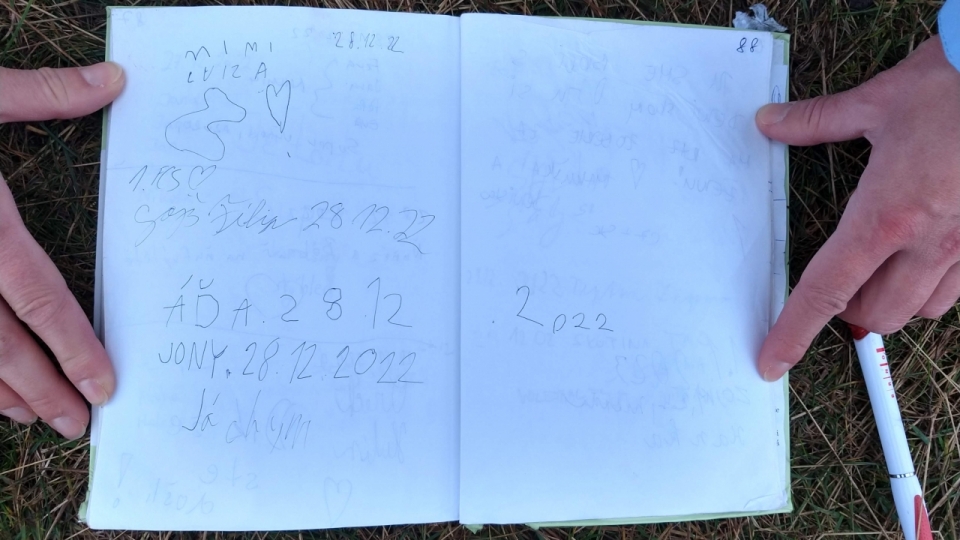 MIMI 28.12.22
LUIZA
1.RS
Filip 28.12.22
ÁĎA. 28.12
.2022
JONY. 28.12.2022
Já chym
88